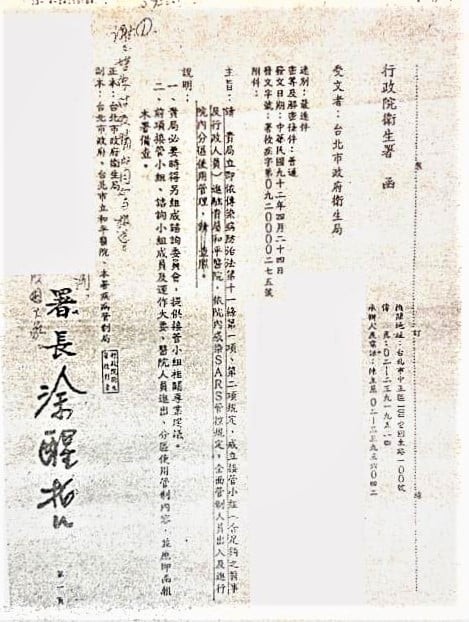 行政院衛生署 函
機關地址：台北市中正區100愛國東路一00號
傳 真：0二-二三九一九五一四
受文者：台北市政府衛生局
速別：最速件
密等及解密條件：普通
發文日期：中華民國九十二年四月二十四日
發文字號：署授疾字第0九二0000二七五號
附件：
主旨：請 貴局立即依傳染病防治法第十一條第一項、第二項規定，成立接管小組（含足夠之醫事
及行政人員）進駐貴局和平醫院，依院內感染SARS管控規定，全面管制人員出入及進行
院內分區使用管理，請 查照。
說明：
一、貴局必要時得另組成諮詢委員會，提供接管小組相關專業建議。
二、前項接管小組、諮詢小組成員及運作大要、醫院人員進出、分區使用管制內容，並應即函報
本署備查。
正本：台北市政府衛生局
副本：台北市政府、台北市立和平醫院、本署疾病管制局
署長 涂醒哲
第一頁
裝
訂
線